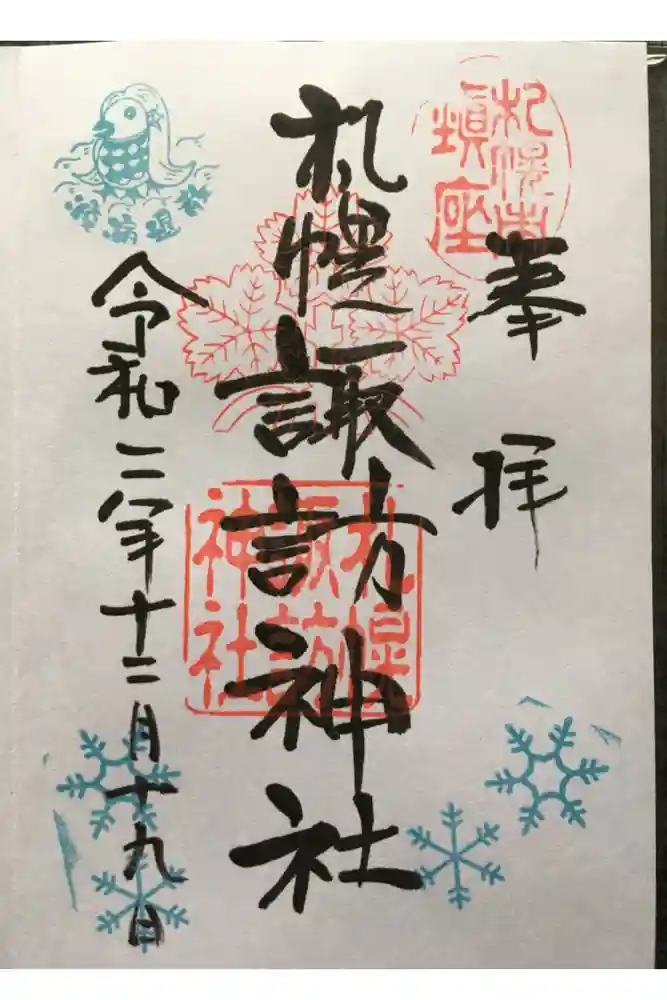 奉拝
札幌市
鎮座
札幌諏訪神社
札幌
諏訪
神社
令和二年十二月十九日
疫病退散